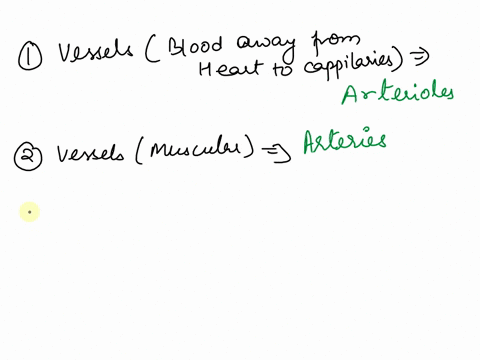 ① Vessels (Blood away from
Heart to cappilaries) ⇒
Arterioles
② Vessels (Muscular) ⇒ Arteries